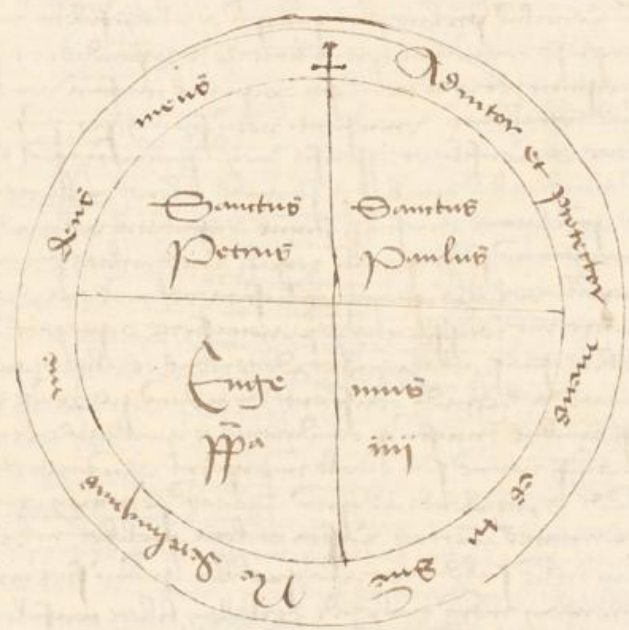 ✝ Adiutor et protector meus es tu Dñe Ne derelinquas me deus meus
Sanctus Sanctus
Petrus Paulus
Euge nius
pp̄a iiij